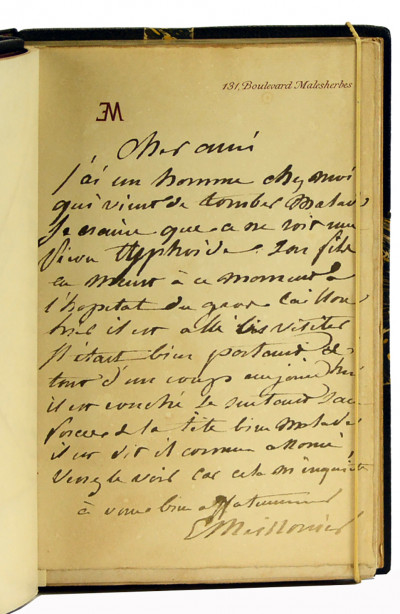 131, Boulevard Malesherbes
EM
Cher ami
J'ai un homme chez moi
qui vient de tomber malade
Je crains que ce ne soit une
fievre typhoide. Son fils
en meurt à ce moment à
l'hopital du gros Caillou
hier il est allé le visiter
Il était bien portant
tout d'un coup aujourd'hui
il est couché se sentant sans
forces de la tête bien malade
il est dit il comme assommé
Venez le voir car cela m'inquiète
à vous bien affectueusement
EMeissonier